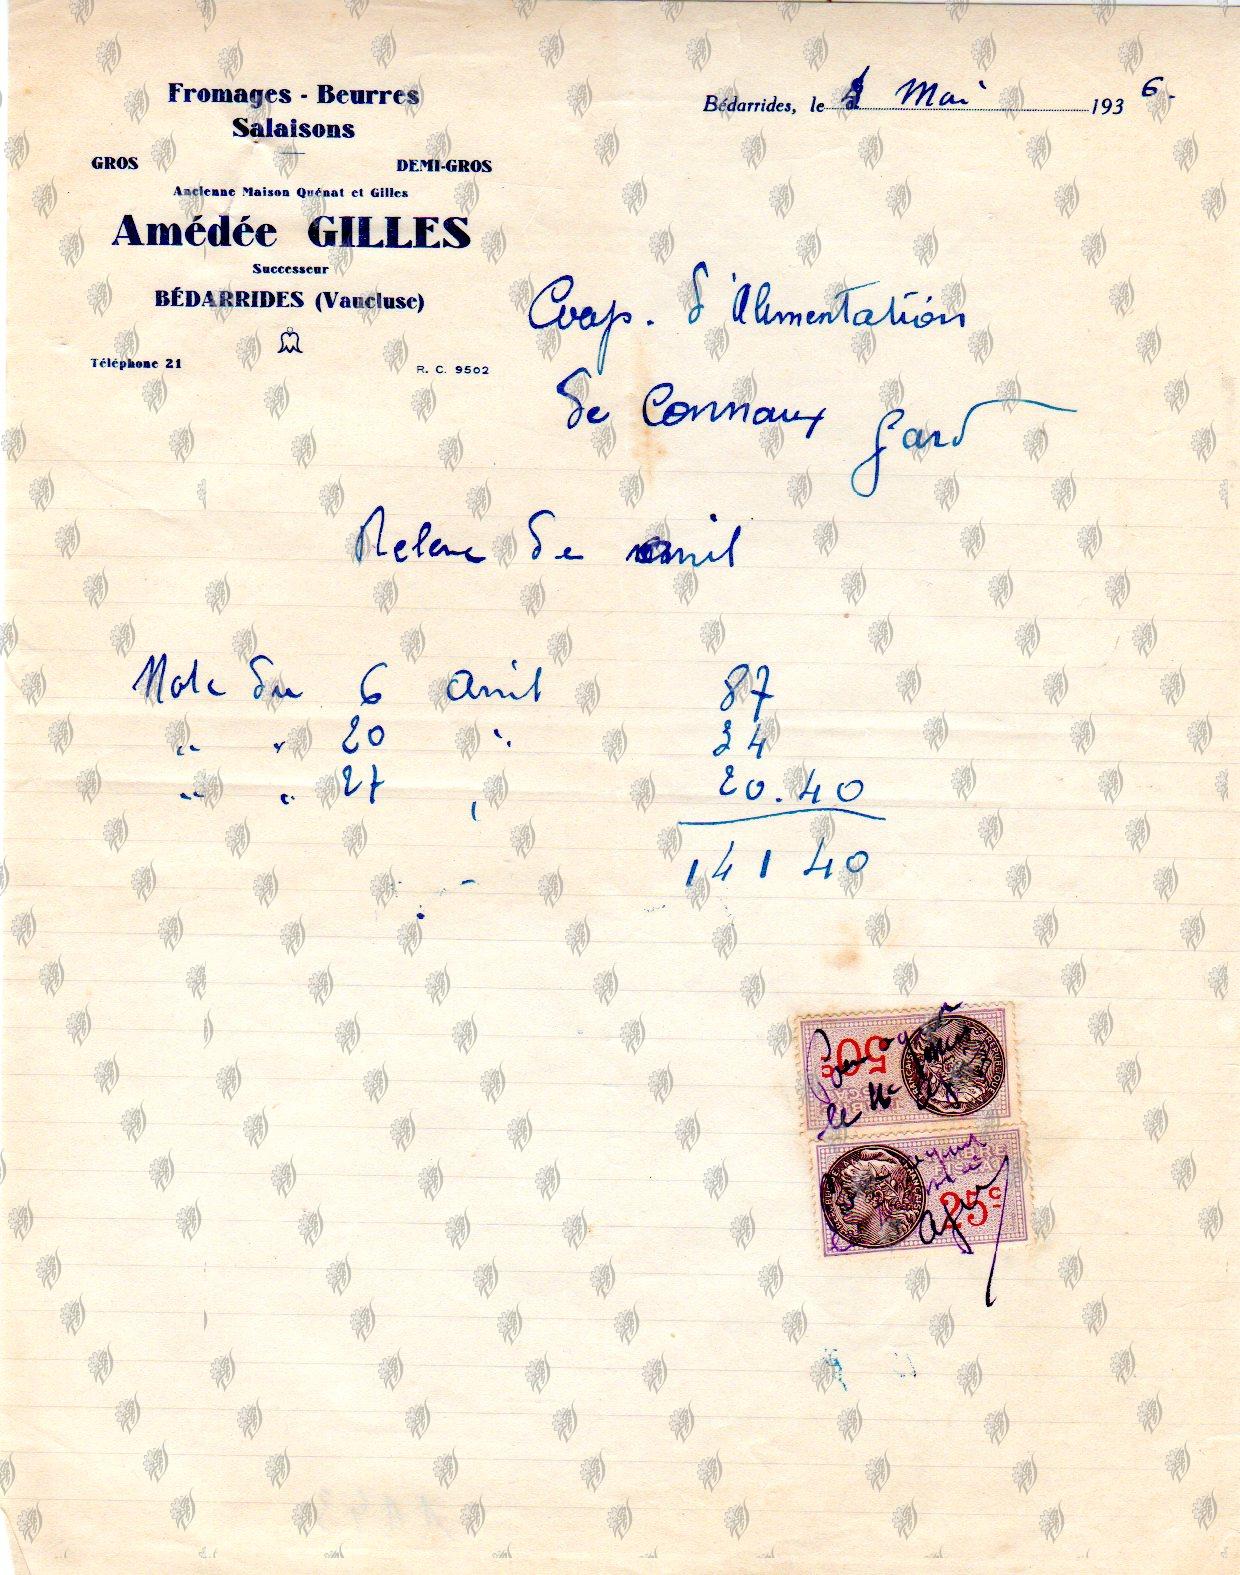 Fromages - Beurres
Salaisons
GROS DEMI-GROS
Ancienne Maison Quénat et Gilles
Amédée GILLES
Successeur
BÉDARRIDES (Vaucluse)
Téléphone 21 R. C. 9502
Bédarrides, le Mai 1936.
Coop. d'Alimentation
de Connaux Gard
Releve de avril
Note du 6 Avril 87
" " 20 " 34
" " 27 " 20.40
141 40
50c
25c